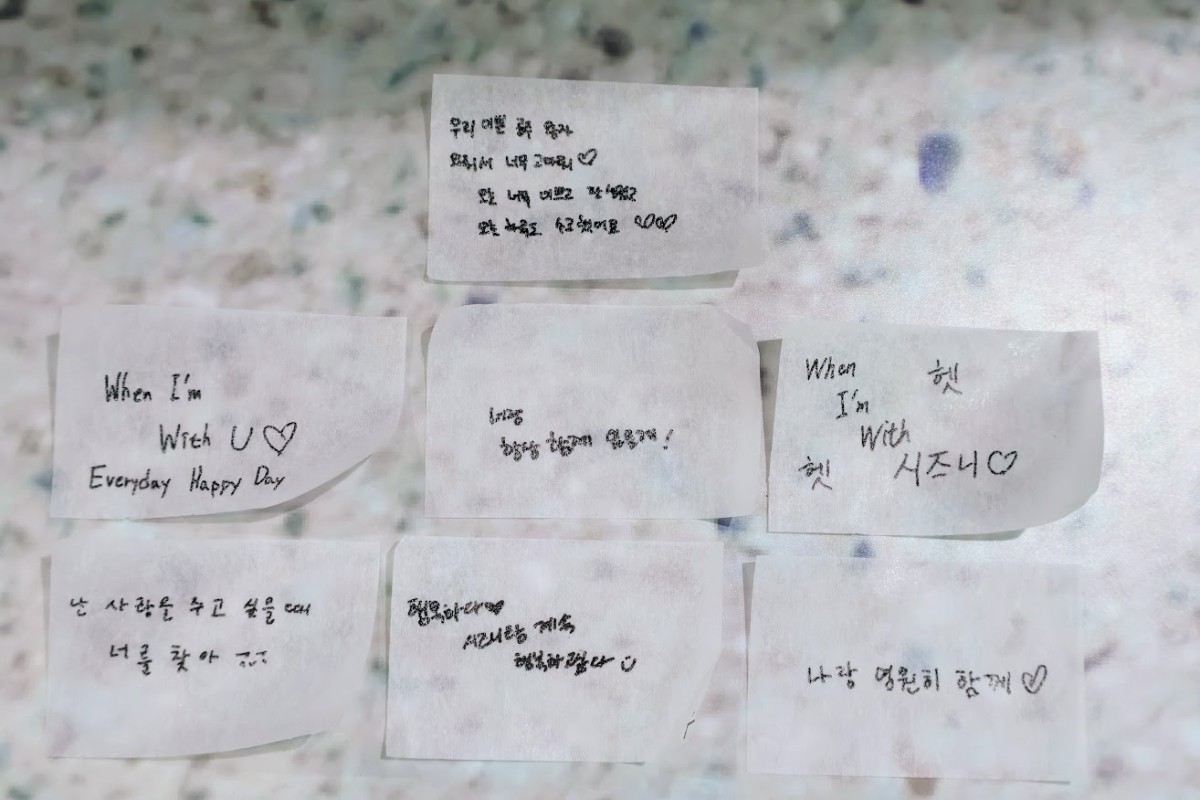 우리 이쁜 공주
와줘서 너무 고마워♡
오늘 너무 이쁘고
오늘 하루도 수고했어요 ♡♡
When I'm
With U♡
Everyday Happy Day
너랑
항상 함께 !
When 헷
I'm
With
헷 시즈니♡
난 사랑을 주고 싶을 때
너를 찾아
행복하다♥
시즈니랑 계속
행복하고싶다
나랑 영원히 함께♡